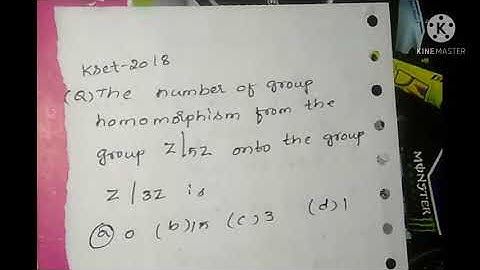 KINEMASTER
Kset-2018
(Q) The number of group
homomorphism from the
group Z/5Z onto the group
Z/3Z is
(a) 0 (b) 15 (c) 3 (d) 1
MONSTER